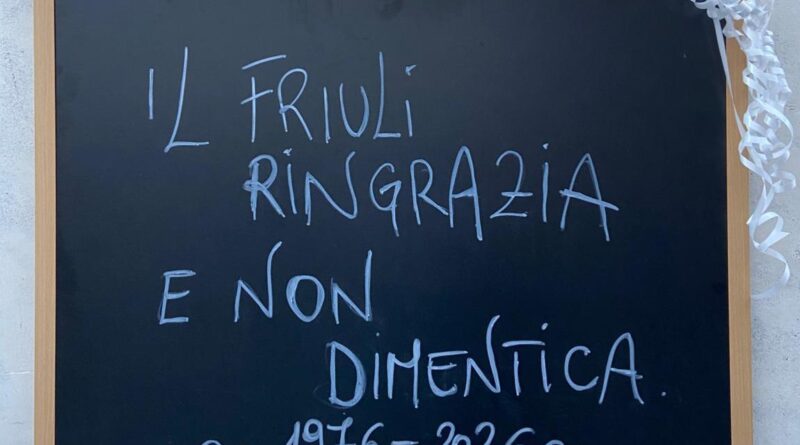 IL FRIULI
RINGRAZIA
E NON
DIMENTICA.
1976-2026